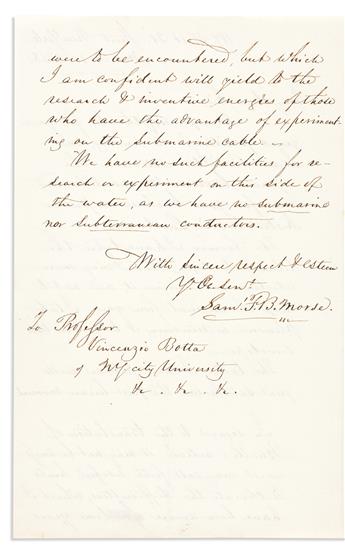 were to be encountered, but which
I am confident will yield to the
research & inventive energies of those
who have the advantage of experiment-
ing on the submarine cable.
We have no such facilities for re-
search or experiment on this side of
the water, as we have no submarine
nor subterranean conductors.
With sincere respect & esteem
Yr. Ob. servt.
Saml. F. B. Morse.
To Professor
Vincenzio Botta
of N.Y. city University
&c. &c. &c.